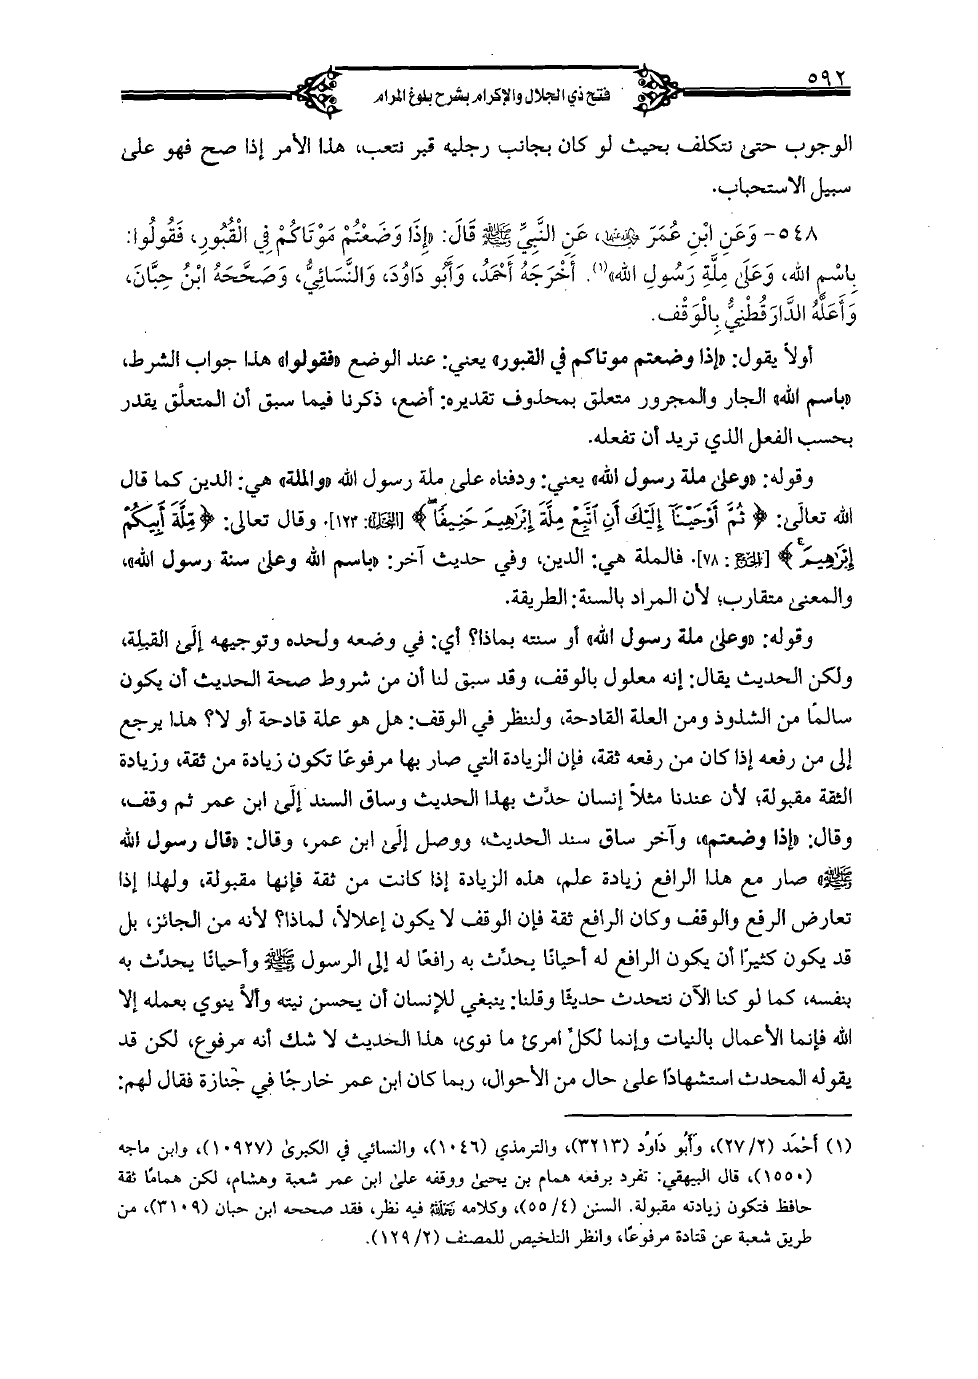 ٥٩٢
فتح ذي الجلال والإكرام بشرح بلوغ المرام
الوجوب حتى نتكلف بحيث لو كان بجانب رجليه قير نتعب، هذا الأمر إذا صح فهو على
سبيل الاستحباب.
٥٤٨- وَعَنِ ابْنِ عُمَرَ رضي الله عنهما، عَنِ النَّبِيِّ ﷺ قَالَ: «إِذَا وَضَعْتُمْ مَوْتَاكُمْ فِي الْقُبُورِ، فَقُولُوا:
بِاسْمِ اللهِ، وَعَلَى مِلَّةِ رَسُولِ اللهِ»(١). أَخْرَجَهُ أَحْمَدُ، وَأَبُو دَاوُدَ، وَالنَّسَائِيُّ، وَصَحَّحَهُ ابْنُ حِبَّانَ،
وَأَعَلَّهُ الدَّارَقُطْنِيُّ بِالْوَقْفِ.
أولاً يقول: «إذا وضعتم موتاكم في القبور» يعني: عند الوضع «فقولوا» هذا جواب الشرط،
«باسم الله» الجار والمجرور متعلق بمحذوف تقديره: أضع، ذكرنا فيما سبق أن المتعلَّق يقدر
بحسب الفعل الذي تريد أن تفعله.
وقوله: «وعلى ملة رسول الله» يعني: ودفناه على ملة رسول الله «والملة» هي: الدين كما قال
الله تعالى: ﴿ ثُمَّ أَوْحَيْنَآ إِلَيْكَ أَنِ اتَّبِعْ مِلَّةَ إِبْرَاهِيمَ حَنِيفًا ﴾ [النحل: ١٢٣]. وقال تعالى: ﴿ مِّلَّةَ أَبِيكُمْ
إِبْرَاهِيمَ ﴾ [الحج: ٧٨]. فالملة هي: الدين، وفي حديث آخر: «باسم الله وعلى سنة رسول الله»،
والمعنى متقارب؛ لأن المراد بالسنة: الطريقة.
وقوله: «وعلى ملة رسول الله» أو سنته بماذا؟ أي: في وضعه ولحده وتوجيهه إلَى القبلة،
ولكن الحديث يقال: إنه معلول بالوقف، وقد سبق لنا أن من شروط صحة الحديث أن يكون
سالمًا من الشذوذ ومن العلة القادحة، ولننظر في الوقف: هل هو علة قادحة أو لا؟ هذا يرجع
إلى من رفعه إذا كان من رفعه ثقة، فإن الزيادة التي صار بها مرفوعًا تكون زيادة من ثقة، وزيادة
الثقة مقبولة؛ لأن عندنا مثلاً إنسان حدَّث بهذا الحديث وساق السند إلَى ابن عمر ثم وقف،
وقال: «إذا وضعتم»، وآخر ساق سند الحديث، ووصل إلَى ابن عمر، وقال: «قال رسول الله
ﷺ» صار مع هذا الرافع زيادة علم، هذه الزيادة إذا كانت من ثقة فإنها مقبولة، ولهذا إذا
تعارض الرفع والوقف وكان الرافع ثقة فإن الوقف لا يكون إعلالاً، لماذا؟ لأنه من الجائز، بل
قد يكون كثيرًا أن يكون الرافع له أحيانًا يحدِّث به رافعًا له إلى الرسول ﷺ وأحيانًا يحدِّث به
بنفسه، كما لو كنا الآن نتحدث حديثًا وقلنا: ينبغي للإنسان أن يحسن نيته وألاَّ ينوي بعمله إلا
الله فإنما الأعمال بالنيات وإنما لكلِّ امرئ ما نوى، هذا الحديث لا شك أنه مرفوع، لكن قد
يقوله المحدث استشهادًا على حال من الأحوال، ربما كان ابن عمر خارجًا في جنازة فقال لهم:
(١) أَحْمَد (٢٧/٢)، وَأَبُو دَاوُد (٣٢١٣)، والترمذي (١٠٤٦)، والنسائي في الكبرى (١٠٩٢٧)، وابن ماجه
(١٥٥٠)، قال البيهقي: تفرد برفعه همام بن يحيى ووقفه على ابن عمر شعبة وهشام، لكن همامًا ثقة
حافظ فتكون زيادته مقبولة. السنن (٤/ ٥٥)، وكلامه رحمه الله فيه نظر، فقد صححه ابن حبان (٣١٠٩)، من
طريق شعبة عن قتادة مرفوعًا، وانظر التلخيص للمصنف (١٢٩/٢).